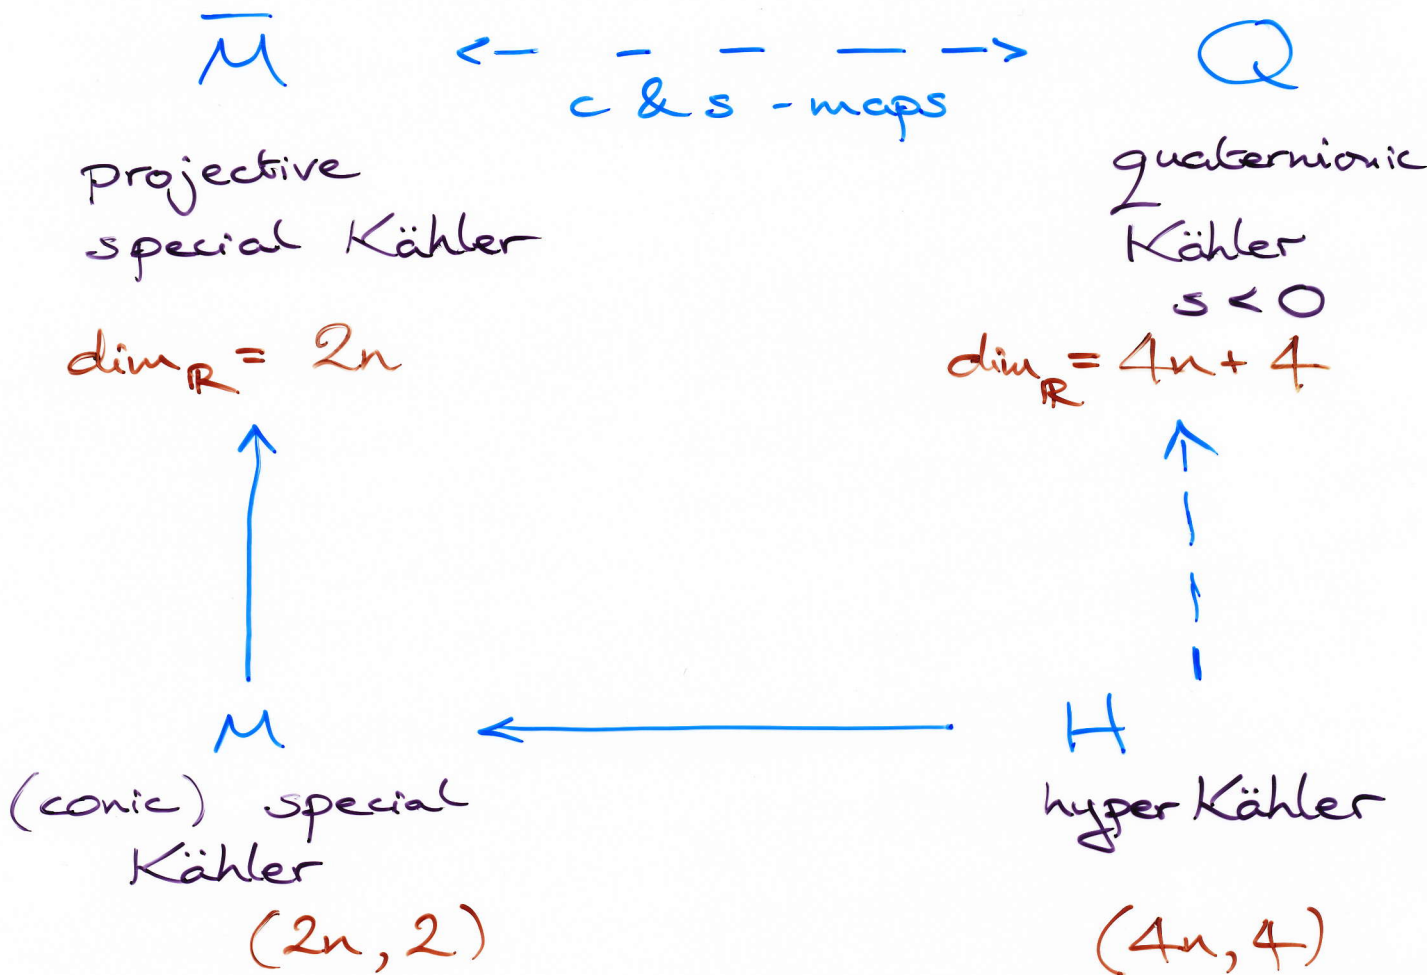 M̅ Q
c & s - maps
projective
special Kähler
dim_ℝ = 2n
quaternionic
Kähler
s < 0
dim_ℝ = 4n + 4
M H
(conic) special
Kähler
(2n, 2)
hyperKähler
(4n, 4)